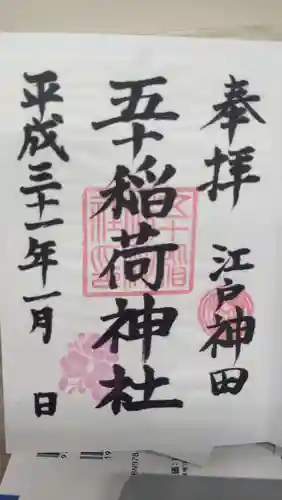 奉拝
江戸神田
五十稲荷神社
平成三十一年一月 日